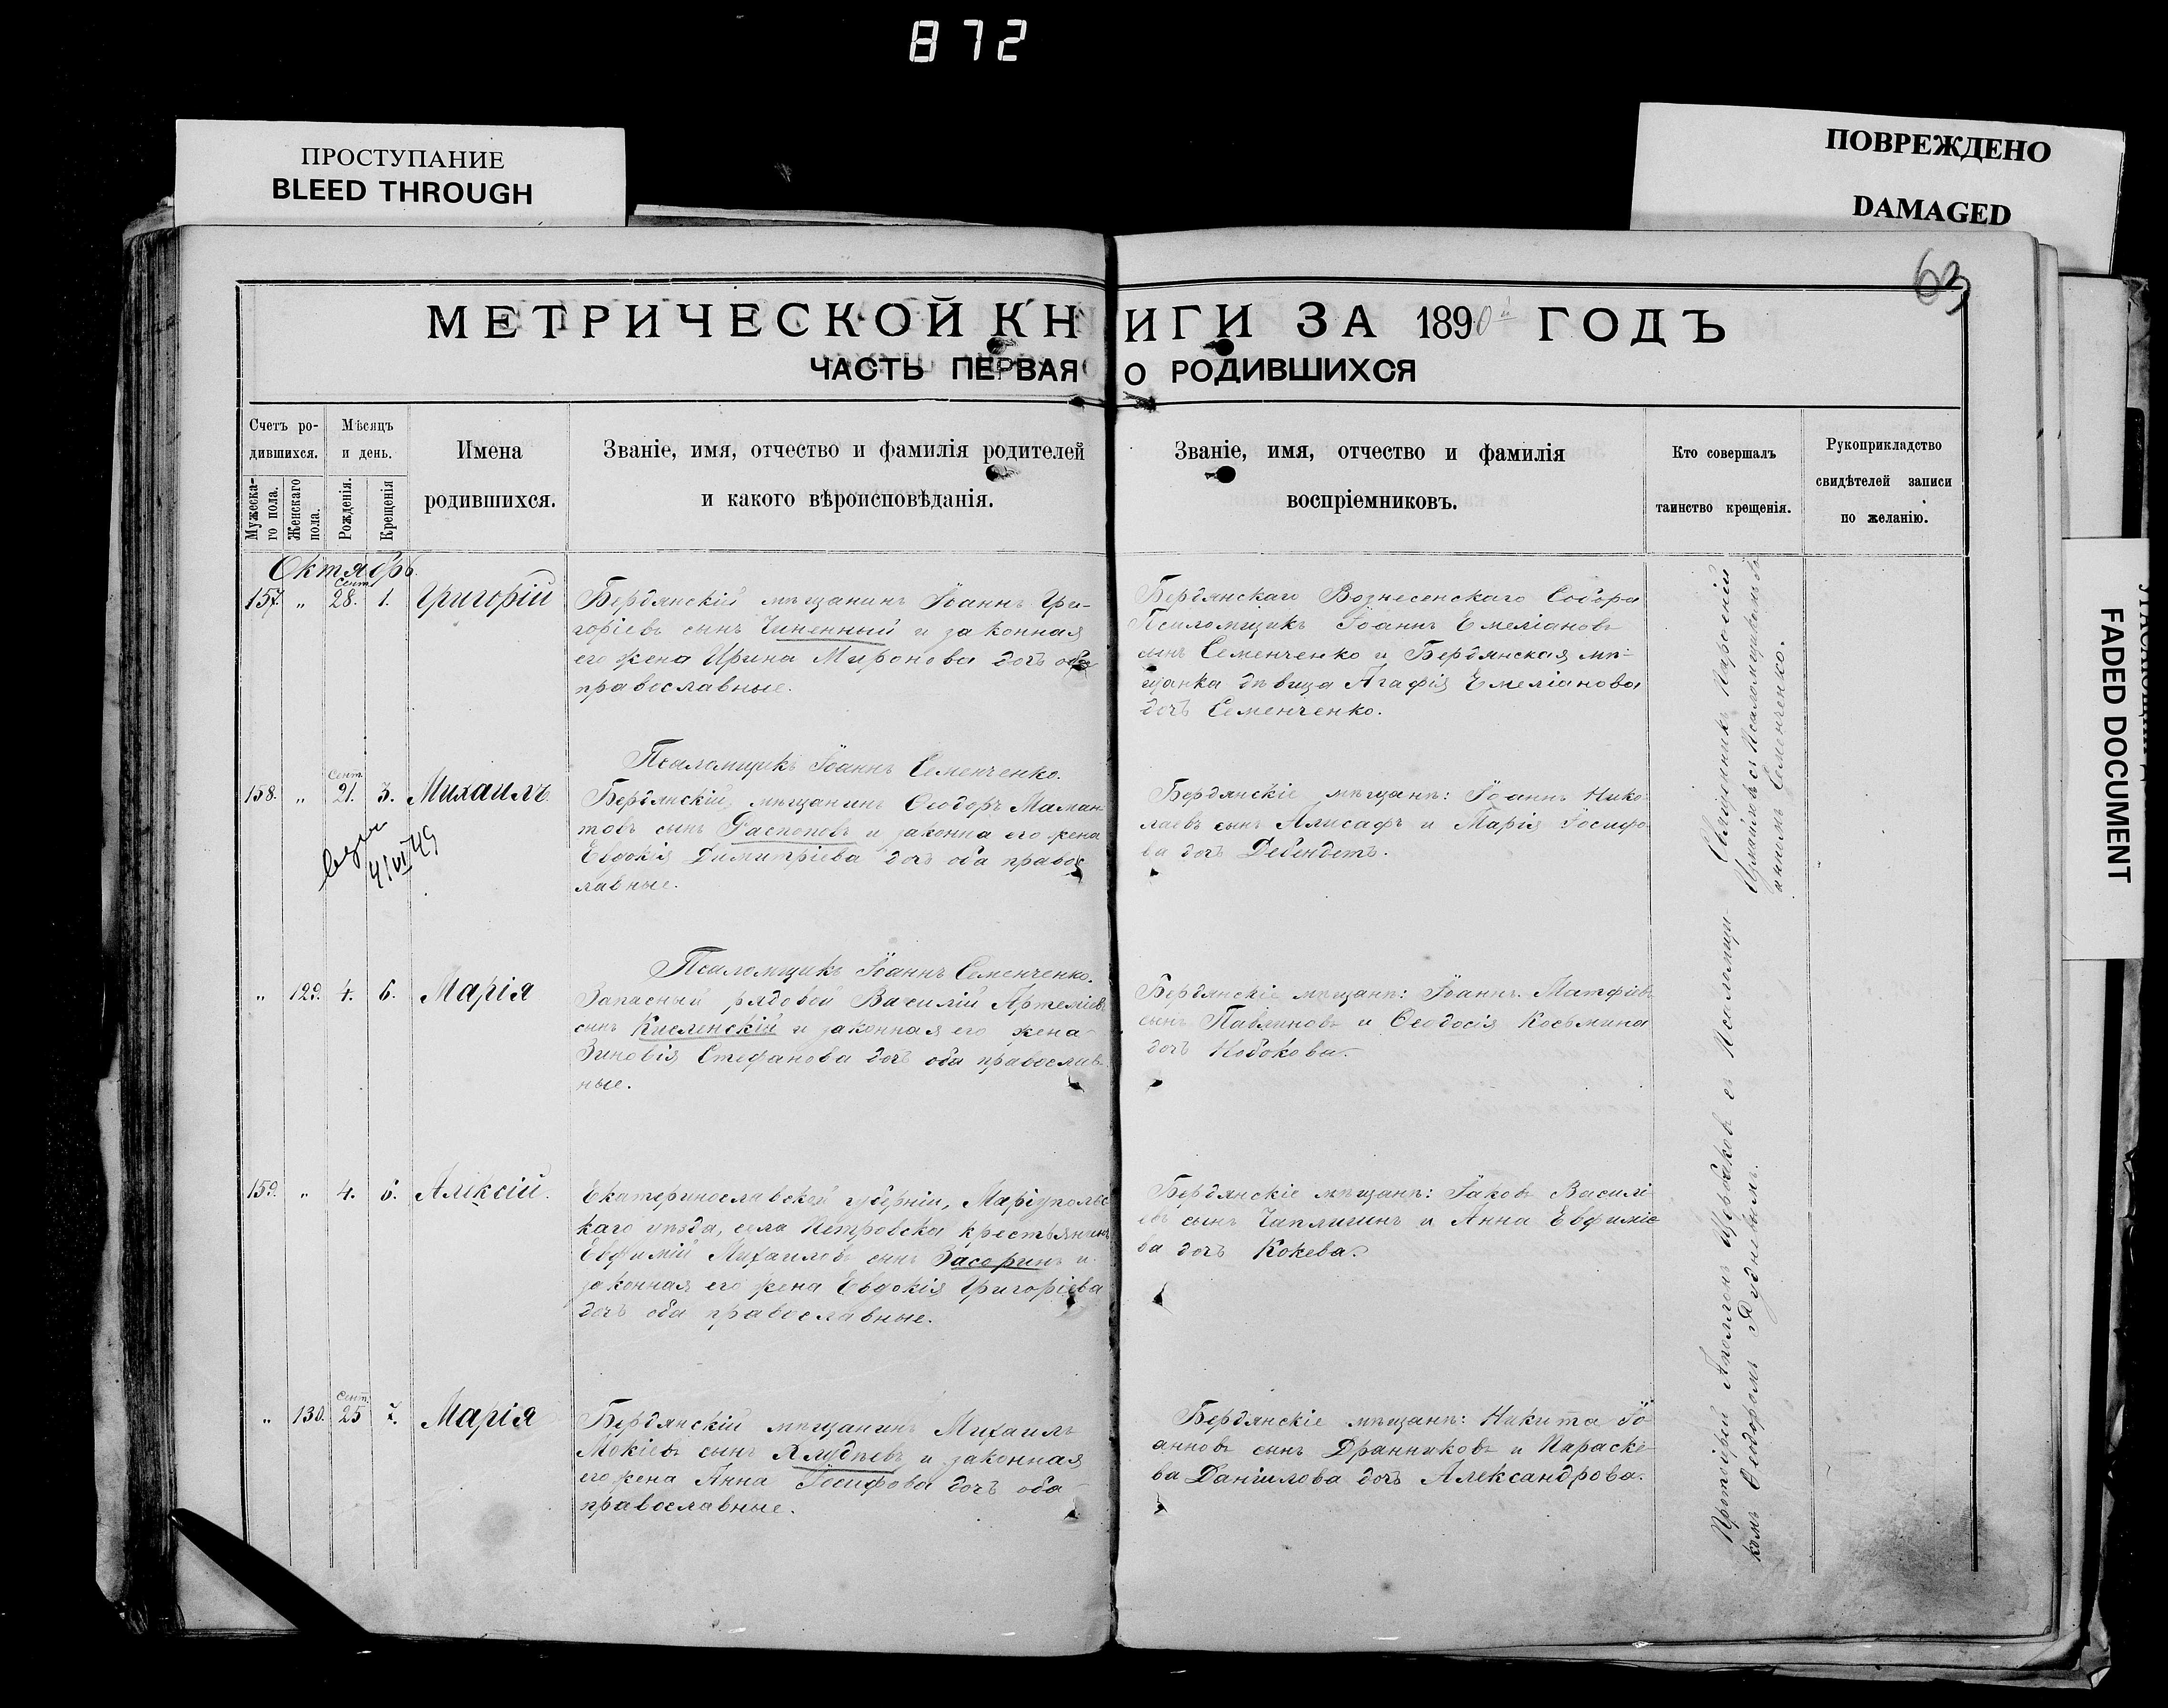 872
ПРОСТУПАНИЕ
BLEED THROUGH
ПОВРЕЖДЕНО
DAMAGED
FADED DOCUMENT
63
МЕТРИЧЕСКОЙ КНИГИ ЗА 1890й ГОДЪ
ЧАСТЬ ПЕРВАЯ О РОДИВШИХСЯ
Счетъ ро-
дившихся.
Мужеска-
го пола.
Женскаго
пола.
Мѣсяцъ
и день.
Рожденія.
Крещенія
Имена
родившихся.
Званіе, имя, отчество и фамилія родителей
и какого вѣроисповѣданія.
Званіе, имя, отчество и фамилія
воспріемниковъ.
Кто совершалъ
таинство крещенія.
Рукоприкладство
свидѣтелей записи
по желанію.
Октябрь.
157. „ Сент. 28. 1. Григорій
Бердянскій мѣщанинъ Іоаннъ Гри-
горіевъ сынъ Чиненный и законная
его жена Ирина Миронова дочь оба
православные.
Бердянскаго Вознесенскаго Собора
Псаломщикъ Іоаннъ Емеліановъ
сынъ Семенченко и Бердянская мѣ-
щанка дѣвица Агафія Емеліанова
дочь Семенченко.
Псаломщикъ Іоаннъ Семенченко.
158. „ Сент. 21. 3. Михаилъ.
Бердянскій мѣщанинъ Ѳеодоръ Маман-
товъ сынъ Распоповъ и законна его жена
Евдокія Димитріева дочь оба правос
лавные.
Бердянскіе мѣщане: Іоаннъ Нико-
лаевъ сынъ Алисафъ и Марія Іосифо-
ва дочь
Псаломщикъ Іоаннъ Семенченко.
„ 129. 4. 6. Марія
Запасный рядовой Василій Артеміевъ
сынъ Кисленскій и законная его жена
Зиновія Стефанова дочь оба православ-
ные.
Бердянскіе мѣщане: Іоаннъ Матфіевъ
сынъ Павлиновъ и Ѳеодосія Косьмина
дочь Набокова.
159. „ 4. 6. Алексій.
Екатеринославской губерніи, Маріупольс
каго уѣзда, села Петровска крестьянинъ
Евфимій Михаиловъ сынъ Засоринъ и
законная его жена Евдокія Григоріева
дочь оба православные.
Бердянскіе мѣщане: Іаковъ Василі-
евъ сынъ Чаплигинъ и Анна Евфиміе
ва дочь Кокева.
„ 130. Сент. 25 7. Марія
Бердянскій мѣщанинъ Михаилъ
Мокіевъ сынъ и законная
его жена Анна Іосифова дочь оба
православные.
Бердянскіе мѣщане: Никита Іо-
анновъ сынъ Дранниковъ и Параске-
ва Даніилова дочь Александрова.
Священникъ
съ Псаломщикомъ
Іоанномъ Семенченко.
Протоіерей Аполлонъ съ Псаломщи-
комъ Ѳеодоромъ Рудневымъ.